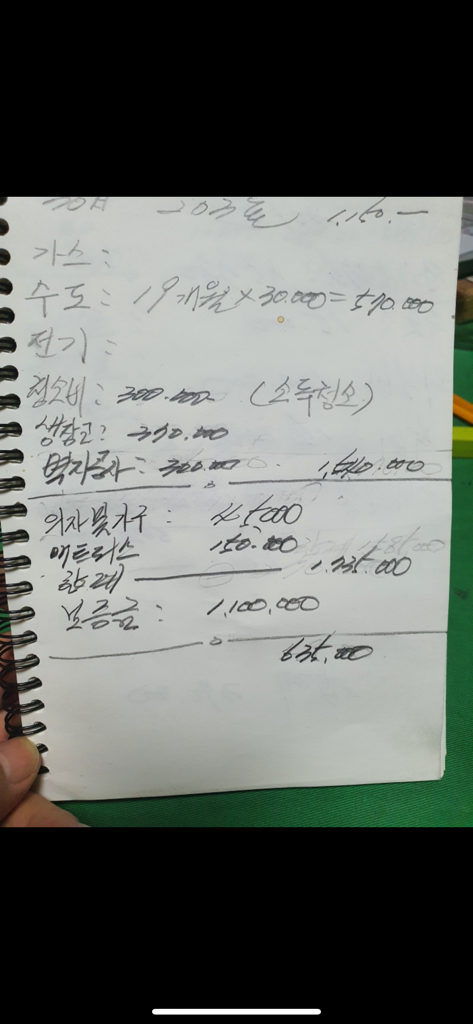 203호 1,150.—
가스:
수도: 19개월×30.000=570.000
전기:
청소비: 300.000 (소독청소)
냉장고: 370.000
벽지공사: 300.000 1,540.000
의자및가구: 45000
매트리스 150.000
합계 1.735.000
보증금: 1,100,000
635,000